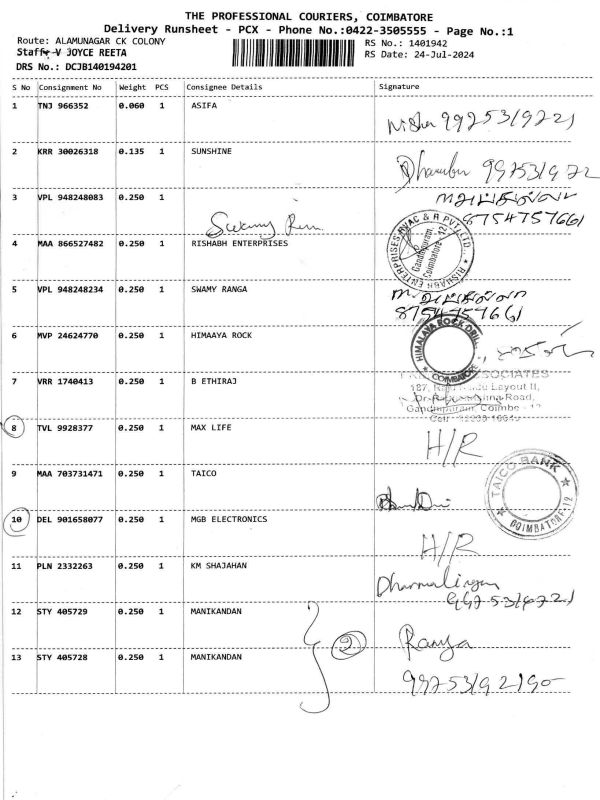 THE PROFESSIONAL COURIERS, COIMBATORE
Delivery Runsheet - PCX - Phone No.:0422-3505555 - Page No.:1
Route: ALAMUNAGAR CK COLONY
RS No.: 1401942
Staff V JOYCE REETA
RS Date: 24-Jul-2024
DRS No.: DCJB140194201
S No Consignment No Weight PCS Consignee Details Signature
1 TNJ 966352 0.060 1 ASIFA
2 KRR 30026318 0.135 1 SUNSHINE
3 VPL 948248083 0.250 1
8754757661
4 MAA 866527482 0.250 1 RISHABH ENTERPRISES
RISHABH ENTERPRISES HVAC & R PVT. LTD.
Gandhipuram,
Coimbatore - 12
5 VPL 948248234 0.250 1 SWAMY RANGA
8754757661
6 MVP 24624770 0.250 1 HIMAAYA ROCK
HIMALAYA ROCK DRILL
COIMBATORE
7 VRR 1740413 0.250 1 B ETHIRAJ
ASSOCIATES
187, Layout II,
Road,
Gandhipuram, Coimbe - 12
8 TVL 9928377 0.250 1 MAX LIFE
H/R
9 MAA 703731471 0.250 1 TAICO
TAICO BANK
COIMBATORE-12
10 DEL 901658077 0.250 1 MGB ELECTRONICS
H/R
11 PLN 2332263 0.250 1 KM SHAJAHAN
Dharmalingam
12 STY 405729 0.250 1 MANIKANDAN
2 Ramya
13 STY 405728 0.250 1 MANIKANDAN